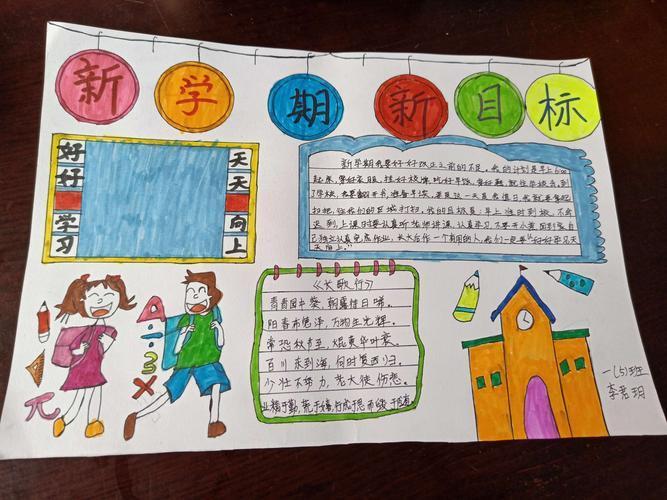 新学期新目标
好好学习
天天向上
新学期我要好好改正之前的不足。我的计划是早上6:00
起床,穿好衣服,挂好校牌,吃好早饭,
到学校,我要翻开书,准备早读。
扫把,在我们的区域打扫。我的目标是:早上准时到校,不会
迟到,上课时要认真听老师讲课,认真学习,不要开小差,回到家自
己独立认真完成作业,长大后作一个有用的人。我们一定要“好好学习天
天向上。”
《长歌行》
青青园中葵,朝露待日晞。
阳春布德泽,万物生光辉。
常恐秋节至,焜黄华叶衰。
百川东到海,何时复西归。
少壮不努力,老大徒伤悲。
业精于勤,荒于嬉,行成于思而毁于随
A
÷
3
X
π
一(5)班
李君玥